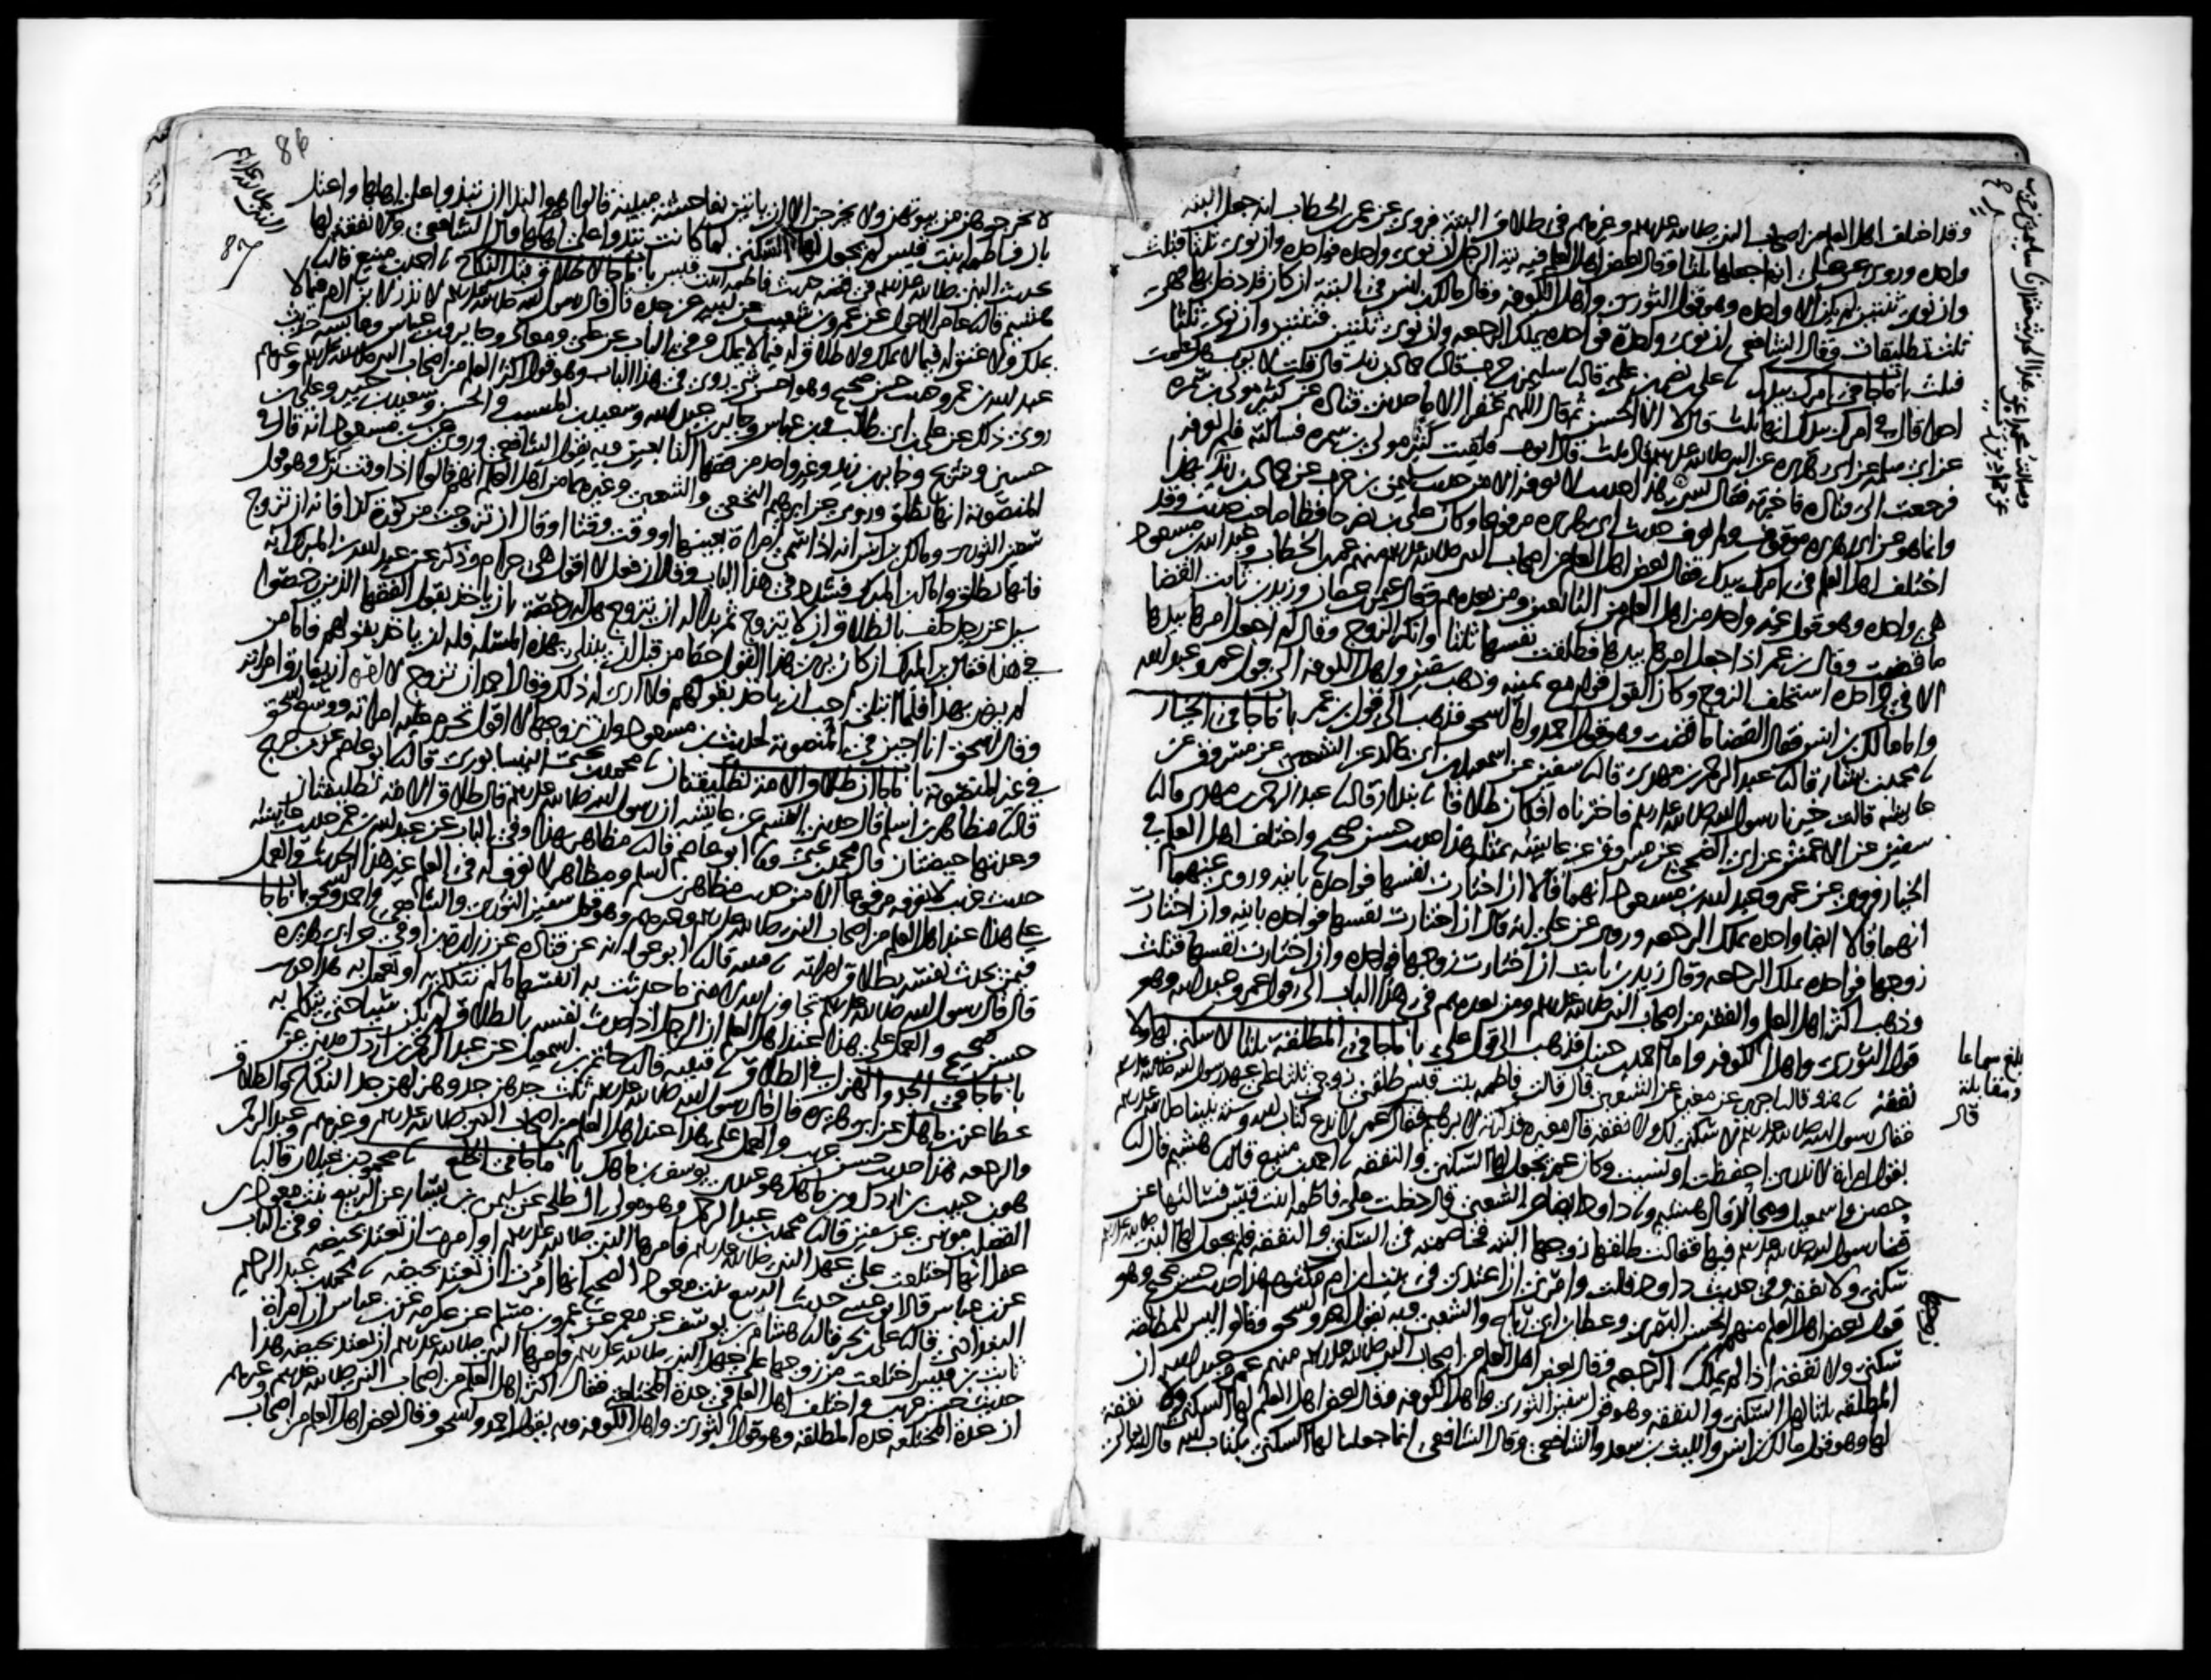 وقد اختلف اهل العلم من اصحاب النبي صلى الله عليه وسلم وغيرهم في طلاق البتة فروي عن عمر بن الخطاب انه جعل البتة
واحدة وروي عن علي انه جعلها ثلثا وقال بعض اهل العلم فيه نية الرجل ان نوى واحدة فواحدة وان نوى ثلثا فثلث
وان نوى ثنتين لم تكن الا واحدة وهو قول الثوري واهل الكوفة وقال مالك بن انس في البتة ان كان قد دخل بها فهي
ثلث تطليقات وقال الشافعي ان نوى واحدة فواحدة يملك الرجعة وان نوى ثنتين فثنتين وان نوى ثلثا
فثلث باب ما جا في امرك بيدك علي بن نصر بن علي قال سليمن بن حرب قال حماد بن زيد قال قلت لايوب هل علمت
احدا قال في امرك بيدك انها ثلث قال لا الا الحسن ثم قال اللهم غفرا الا ما حدثني قتادة عن كثير مولى بن سمرة
عن ابي سلمة عن ابي هريرة عن النبي صلى الله عليه وسلم قال ثلث قال ايوب فلقيت كثير مولى بن سمرة فسالته فلم يعرفه
فرجعت الى قتادة فاخبرته فقال نسي هذا حديث لا نعرفه الا من حديث سليمن بن حرب عن حماد بن زيد بهذا
وانما هو عن ابي هريرة موقوف ولم يعرف حديث ابي هريرة مرفوعا وكان علي بن نصر حافظا صاحب حديث وقد
اختلف اهل العلم في امرك بيدك فقال بعض اهل العلم من اصحاب النبي صلى الله عليه وسلم منهم عمر بن الخطاب وعبد الله بن مسعود
هي واحدة وهو قول غير واحد من اهل العلم من التابعين ومن بعدهم وقال عثمن بن عفان وزيد بن ثابت القضا
ما قضت وقال بن عمر اذا جعل امرها بيدها فطلقت نفسها ثلثا وانكر الزوج وقال لم اجعل امرها بيدها
الا في واحدة استحلف الزوج وكان القول قوله مع يمينه وذهب سفين واهل الكوفة الى قول عمر وعبد الله
واما مالك بن انس فقال القضا ما قضت وهو قول احمد واما اسحق فذهب الى قول بن عمر باب ما جا في الخيار
محمد بن بشار قال عبد الرحمن بن مهدي قال سفين عن اسمعيل بن ابي خالد عن الشعبي عن مسروق عن
عايشة قالت خيرنا رسول الله صلى الله عليه وسلم فاخترناه افكان طلاقا بندار قال عبد الرحمن بن مهدي قال
سفين عن الاعمش عن ابي الضحى عن مسروق عن عايشة بمثله هذا حديث حسن صحيح واختلف اهل العلم في
الخيار فروي عن عمر وعبد الله بن مسعود انهما قالا ان اختارت نفسها فواحدة باينة وروي عنهما
انهما قالا ايضا واحدة يملك الرجعة وروي عن علي انه قال ان اختارت نفسها فواحدة باينة وان اختارت
زوجها فواحدة يملك الرجعة وقال زيد بن ثابت ان اختارت زوجها فواحدة وان اختارت نفسها فثلث
وذهب اكثر اهل العلم والفقه من اصحاب النبي صلى الله عليه وسلم ومن بعدهم في هذا الباب الى قول عمر وعبد الله وهو
قول الثوري واهل الكوفة واما احمد بن حنبل فذهب الى قول علي باب ما جا في المطلقة ثلثا لا سكنى لها ولا
نفقة هناد قال جرير عن مغيرة عن الشعبي قال قالت فاطمة بنت قيس طلقني زوجي ثلثا على عهد رسول الله صلى الله عليه وسلم
فقال رسول الله صلى الله عليه وسلم لا سكنى لك ولا نفقة قال مغيرة فذكرته لابرهيم فقال عمر لا ندع كتاب الله وسنة نبينا صلى الله عليه وسلم
بقول امراة لا ندري احفظت او نسيت وكان عمر يجعل لها السكنى والنفقة احمد بن منيع قال هشيم قال
حصين واسمعيل ومجالد قال هشيم وداود ايضا عن الشعبي قال دخلت على فاطمة بنت قيس فسالتها عن
قضا رسول الله صلى الله عليه وسلم فيها فقالت طلقها زوجها البتة فخاصمته في السكنى والنفقة فلم يجعل لها النبي صلى الله عليه وسلم
سكنى ولا نفقة وفي حديث داود قالت وامرني ان اعتد في بيت ابن ام مكتوم هذا حديث حسن صحيح وهو
قول بعض اهل العلم منهم الحسن البصري وعطا بن ابي رباح والشعبي وبه يقول احمد واسحق وقالوا ليس للمطلقة
سكنى ولا نفقة اذا لم يملك الرجعة وقال بعض اهل العلم من اصحاب النبي صلى الله عليه وسلم منهم عمر وعبد الله ان
المطلقة ثلثا لها السكنى والنفقة وهو قول سفين الثوري واهل الكوفة وقال بعض اهل العلم لها السكنى ولا نفقة
لها وهو قول مالك بن انس والليث بن سعد والشافعي وقال الشافعي انما جعلنا لها السكنى بكتاب الله قال الله تعالى
بلغ سماعا
ومقابلة
86
87
لا تخرجوهن من بيوتهن ولا يخرجن الا ان ياتين بفاحشة مبينة قالوا هو البذا ان تبذوا على اهلها واعتل
بان فاطمة بنت قيس لم يجعل لها السكنى لما كانت تبذوا على اهلها قال الشافعي ولا نفقة لها
حديث النبي صلى الله عليه وسلم في قصة حديث فاطمة بنت قيس باب ما جا لا طلاق قبل النكاح احمد بن منيع قال
هشيم قال عامر الاحول عن عمرو بن شعيب عن ابيه عن جده قال قال رسول الله صلى الله عليه وسلم لا نذر لابن ادم فيما لا
يملك ولا عتق له فيما لا يملك ولا طلاق له فيما لا يملك وفي الباب عن علي ومعاذ وجابر وبن عباس وعايشة حديث
عبد الله بن عمرو حديث حسن صحيح وهو احسن شي روي في هذا الباب وهو قول اكثر اهل العلم من اصحاب النبي صلى الله عليه وسلم وغيرهم
روي ذلك عن علي بن ابي طالب وبن عباس وجابر بن عبد الله وسعيد بن المسيب والحسن وسعيد بن جبير وعلي بن
حسين وشريح وجابر بن زيد وغير واحد من فقها التابعين وبه يقول الشافعي وروي عن بن مسعود انه قال في
المنصوبة انها تطلق وروي عن ابرهيم النخعي والشعبي وغيرهما من اهل العلم انهم قالوا اذا وقت نزل وهو قول
سفين الثوري ومالك بن انس انه اذا سمى امراة بعينها او وقت وقتا او قال ان تزوجت من كورة كذا فانه ان تزوج
فانها تطلق واما بن المبارك فشدد في هذا الباب وقال ان فعل لا اقول هي حرام وذكر عن عبد الله بن المبارك انه
سيل عن رجل حلف بالطلاق ان لا يتزوج ثم بدا له ان يتزوج هل له رخصة بان ياخذ بقول الفقها الذين رخصوا
في هذا فقال بن المبارك ان كان يرى هذا القول حقا من قبل ان يبتلى بهذه المسئلة فله ان ياخذ بقولهم فاما من
لم يرض بهذا فلما ابتلي احب ان ياخذ بقولهم فلا ارى له ذلك وقال احمد ان تزوج لا امره ان يفارق امراته
وقال اسحق انا اجيز في المنصوبة لحديث بن مسعود وان تزوجها لا اقول تحرم عليه امراته ووسع اسحق
في غير المنصوبة باب ما جا ان طلاق الامة تطليقتان محمد بن يحيى النيسابوري قال ابو عاصم عن بن جريج
قال مظاهر بن اسلم قال حدثني القسم عن عايشة ان رسول الله صلى الله عليه وسلم قال طلاق الامة تطليقتان
وعدتها حيضتان قال محمد بن يحيى و ابو عاصم قال مظاهر بهذا وفي الباب عن عبد الله بن عمر حديث عايشة
حديث غريب لا نعرفه مرفوعا الا من حديث مظاهر بن اسلم ومظاهر لا يعرف له في العلم غير هذا الحديث والعمل
على هذا عند اهل العلم من اصحاب النبي صلى الله عليه وسلم وغيرهم وهو قول سفين الثوري والشافعي واحمد واسحق باب ما جا
فيمن يحدث نفسه بطلاق امراته قتيبة قال ابو عوانة عن قتادة عن زرارة بن اوفى عن ابي هريرة
قال قال رسول الله صلى الله عليه وسلم تجاوز الله لامتي ما حدثت به انفسها ما لم تتكلم به او تعمل به هذا حديث
حسن صحيح والعمل على هذا عند اهل العلم ان الرجل اذا حدث نفسه بالطلاق لم يكن شيا حتى يتكلم به
باب ما جا في الجد والهزل في الطلاق قتيبة قال حاتم بن اسمعيل عن عبد الرحمن بن اردك مديني عن
عطا عن بن ماهك عن ابي هريرة قال قال رسول الله صلى الله عليه وسلم ثلث جدهن جد وهزلهن جد النكاح والطلاق
والرجعة هذا حديث حسن غريب والعمل على هذا عند اهل العلم من اصحاب النبي صلى الله عليه وسلم وغيرهم وعبد الرحمن
هو بن حبيب بن اردك وبن ماهك هو عندي يوسف بن ماهك باب ما جا في الخلع محمود بن غيلان قال
الفضل بن موسى عن سفين قال محمد بن عبد الرحمن وهو مولى ال طلحة عن سليمن بن يسار عن الربيع بنت معوذ بن
عفرا انها اختلعت على عهد النبي صلى الله عليه وسلم فامرها النبي صلى الله عليه وسلم او امرت ان تعتد بحيضة وفي الباب
عن بن عباس قال ابو عيسى حديث الربيع بنت معوذ الصحيح انها امرت ان تعتد بحيضة محمد بن عبد الرحيم
البغدادي قال علي بن بحر قال هشام بن يوسف عن معمر عن عمرو بن مسلم عن عكرمة عن بن عباس ان امراة
ثابت بن قيس اختلعت من زوجها على عهد النبي صلى الله عليه وسلم فامرها النبي صلى الله عليه وسلم ان تعتد بحيضة هذا
حديث حسن غريب واختلف اهل العلم في عدة المختلعة فقال اكثر اهل العلم من اصحاب النبي صلى الله عليه وسلم وغيرهم
ان عدة المختلعة عدة المطلقة وهو قول الثوري واهل الكوفة وبه يقول احمد واسحق وقال بعض اهل العلم من اصحاب